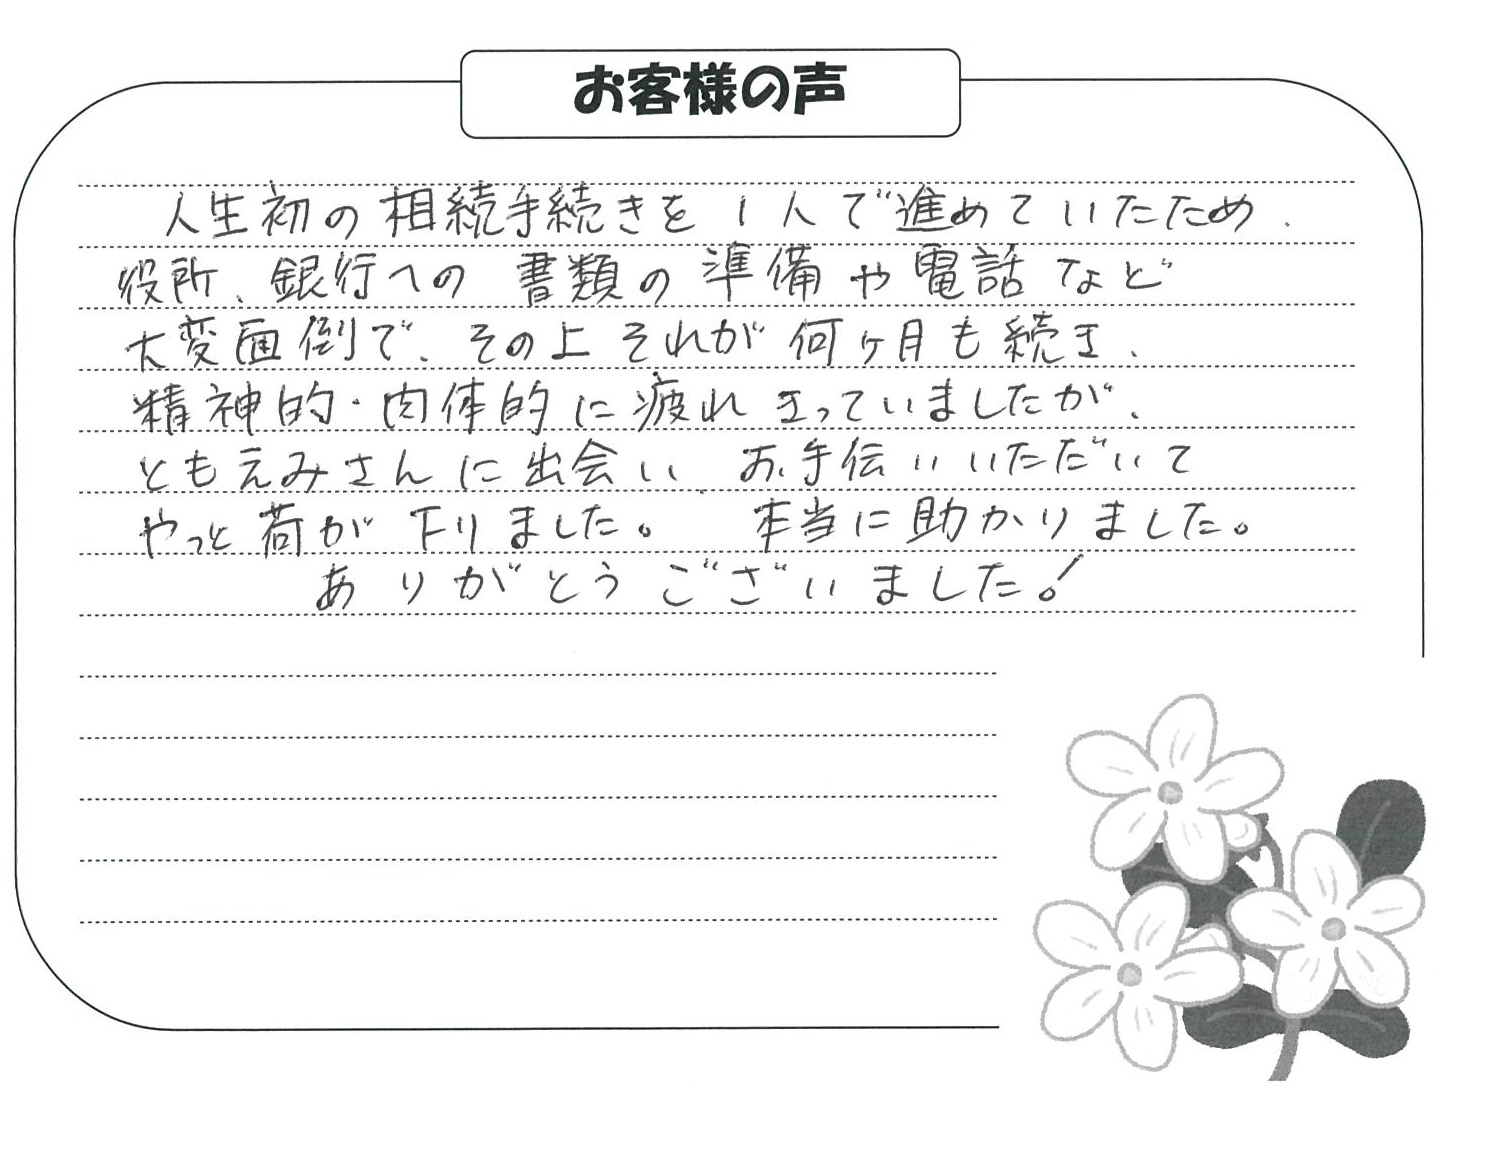 お客様の声
人生初の相続手続きを1人で進めていたため、
役所、銀行への書類の準備や電話など
大変面倒で、その上それが何ヶ月も続き、
精神的・肉体的に疲れきっていましたが、
ともえみさんに出会い、お手伝いいただいて
やっと荷が下りました。 本当に助かりました。
ありがとうございました!